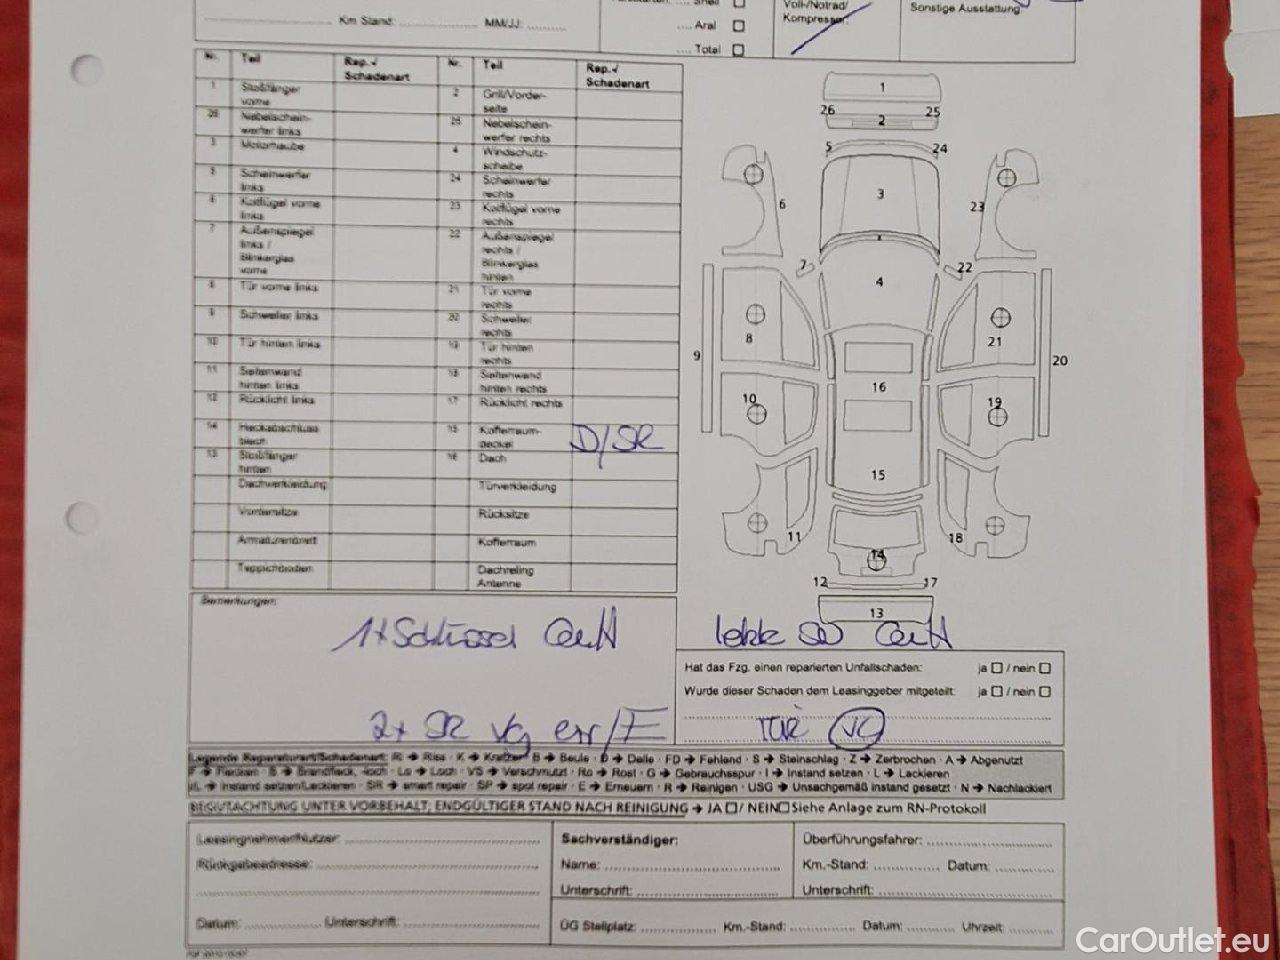 Shell
Aral
Total
Km Stand: MM/JJ:
Voll-/Notrad/
Kompressor:
Sonstige Ausstattung:
Nr. Teil Rep.-/ Schadenart Nr. Teil Rep.-/ Schadenart
1 Stoßfänger vorne 2 Grill/Vorder-seite
26 Nebelschein-werfer links 25 Nebelschein-werfer rechts
3 Motorhaube 4 Windschutz-scheibe
5 Scheinwerfer links 24 Scheinwerfer rechts
6 Kotflügel vorne links 23 Kotflügel vorne rechts
7 Außenspiegel links / Blinkerglas vorne 22 Außenspiegel rechts / Blinkerglas hinten
8 Tür vorne links 21 Tür vorne rechts
9 Schweller links 20 Schweller rechts
10 Tür hinten links 19 Tür hinten rechts
11 Seitenwand hinten links 18 Seitenwand hinten rechts
12 Rücklicht links 17 Rücklicht rechts
14 Heckabschluss blech 15 Kofferraum-deckel D/SR
13 Stoßfänger hinten 16 Dach
Dachverkleidung Türverkleidung
Vordersitze Rücksitze
Armaturenbrett Kofferraum
Teppichboden Dachreling Antenne
1
26 25
2
5 24
3
6 23
7 22
4
8 21
9 20
16
10 19
15
11 18
14
12 17
13
Bemerkungen:
1x Schlüssel
Hat das Fzg. einen reparierten Unfallschaden: ja / nein
Wurde dieser Schaden dem Leasinggeber mitgeteilt: ja / nein
2x SR
Legende Reparaturart/Schadenart: RI → Riss · K → Kratzer · B → Beule · D → Delle · FD → Fehlend · S → Steinschlag · Z → Zerbrochen · A → Abgenutzt
F → Flecken · B → Brandfleck, -loch · Lo → Loch · VS → Verschmutzt · Ro → Rost · G → Gebrauchsspur · I → Instand setzen · L → Lackieren
I/L → Instand setzen/Lackieren · SR → smart repair · SP → spot repair · E → Erneuern · R → Reinigen · USG → Unsachgemäß instand gesetzt · N → Nachlackiert
BEGUTACHTUNG UNTER VORBEHALT; ENDGÜLTIGER STAND NACH REINIGUNG → JA / NEIN Siehe Anlage zum RN-Protokoll
Leasingnehmer/Nutzer:
Rückgabeadresse:
Datum: Unterschrift:
Sachverständiger:
Name:
Unterschrift:
Überführungsfahrer:
Km.-Stand: Datum:
Unterschrift:
ÜG Stellplatz: Km.-Stand: Datum: Uhrzeit:
CarOutlet.eu